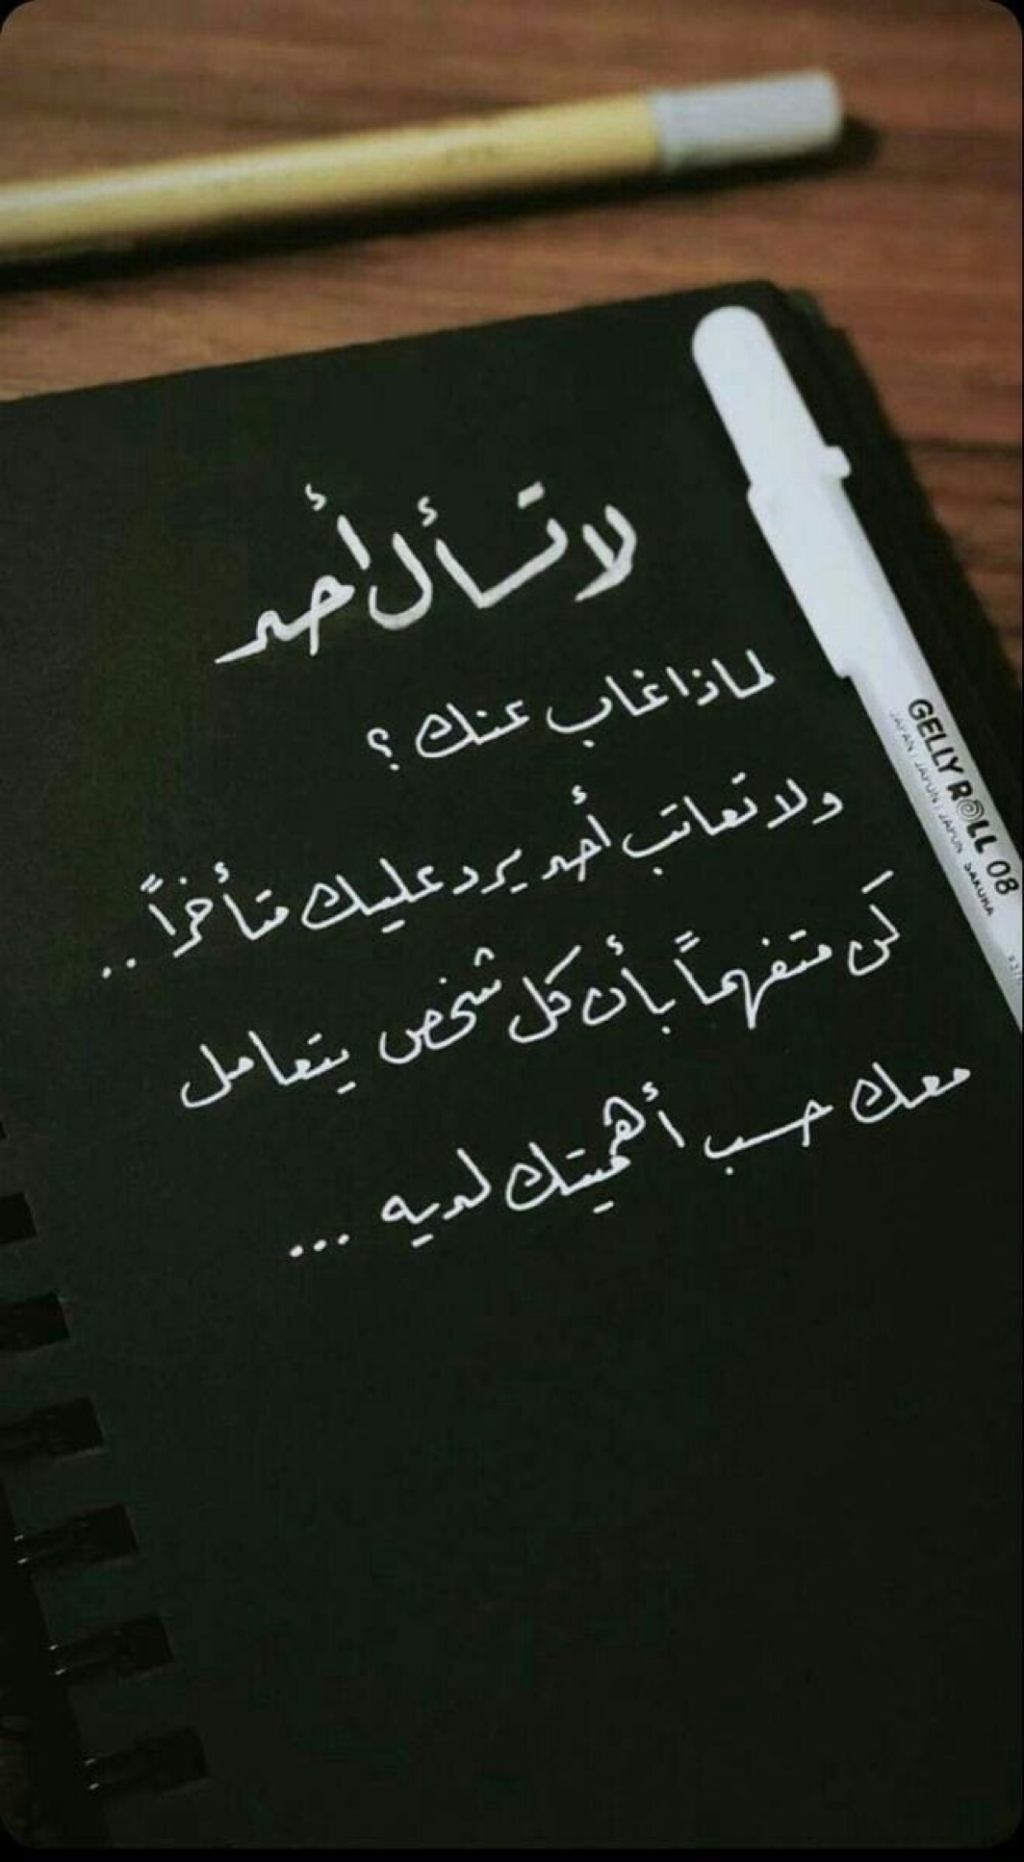 لا تسأل أحد
لماذا غاب عنك ؟
ولا تعاتب أحد يرد عليك متأخراً ..
كن متفهماً بأن كل شخص يتعامل
معك حسب أهميتك لديه ...
GELLY ROLL 08
JAPAN / JAPON / JAPON SAKURA